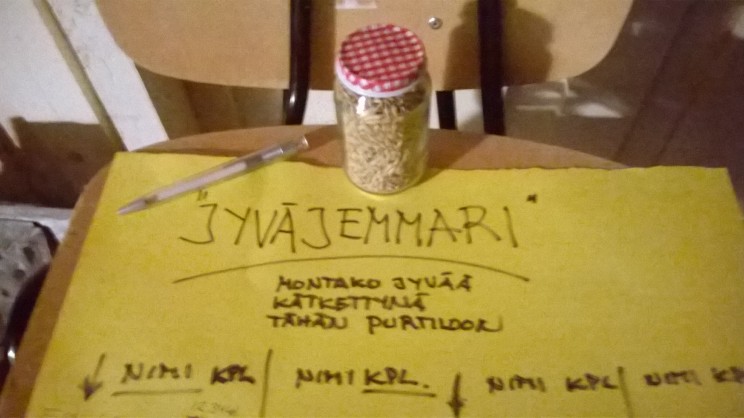 "JYVÄJEMMARI"
MONTAKO JYVÄÄ
KÄTKETTYNÄ
TÄHÄN PURTILOON
NIMI KPL NIMI KPL. NIMI KPL NIMI KP